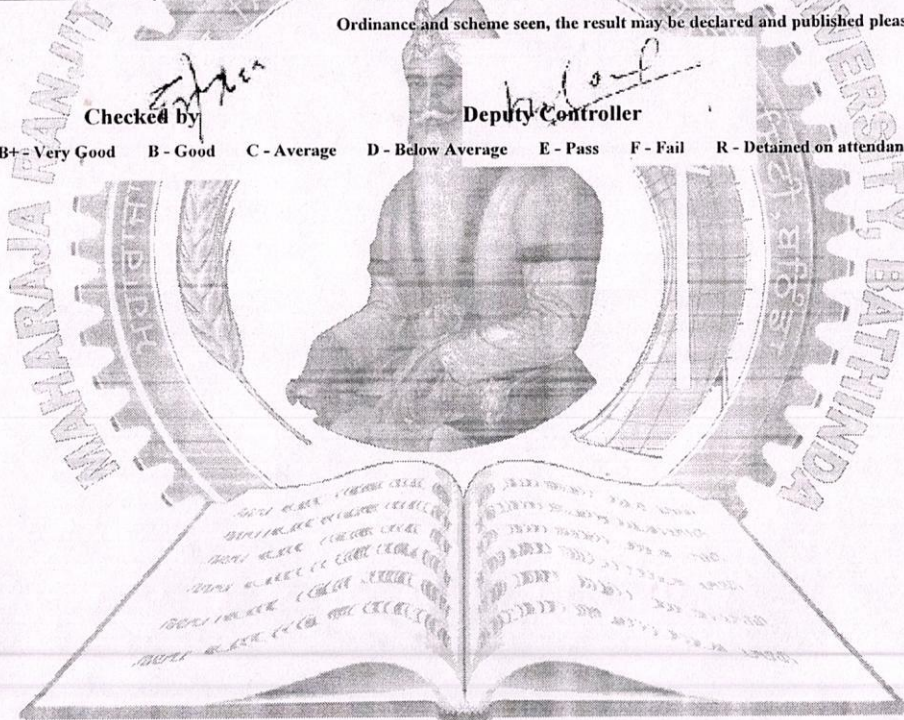 Ordinance and scheme seen, the result may be declared and published pleas
Checked by
Deputy Controller
B+ - Very Good B - Good C - Average D - Below Average E - Pass F - Fail R - Detained on attendan
MAHARAJA RANJIT
VERSITY, BATHINDA